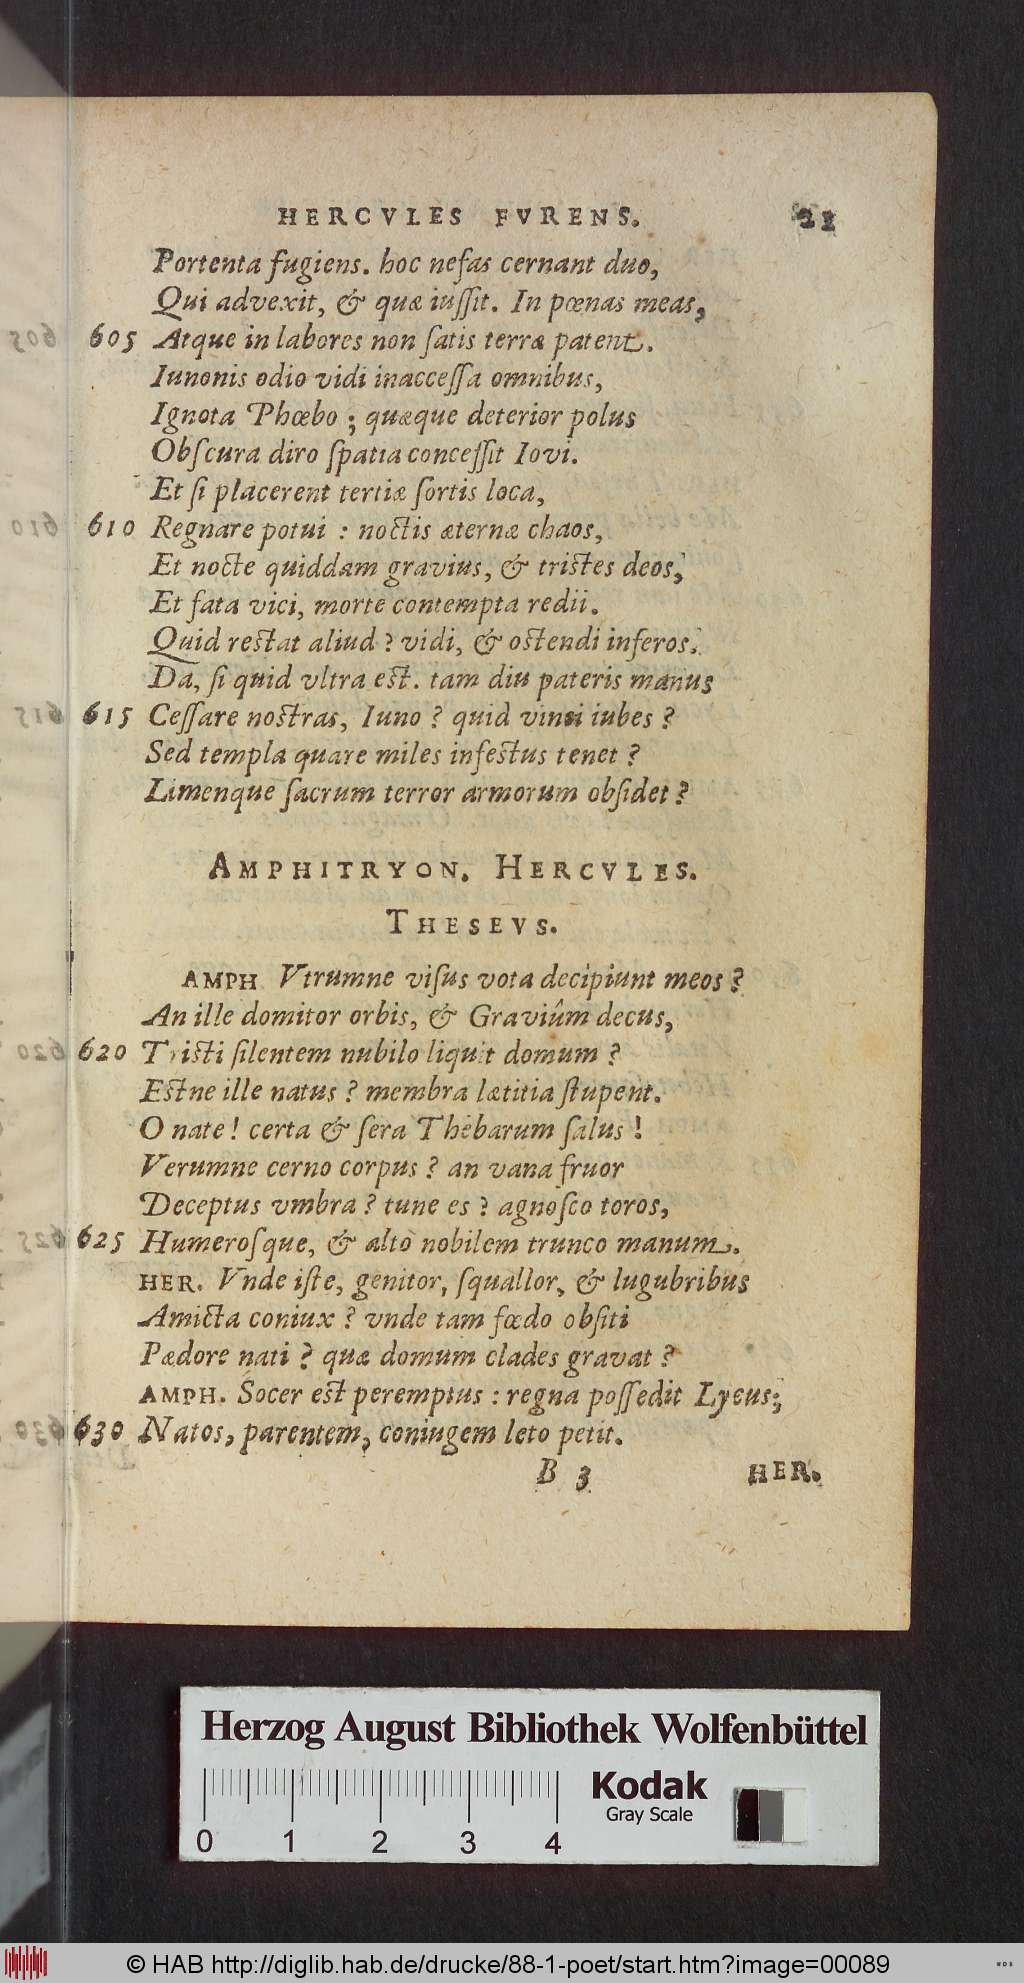 HERCVLES FVRENS. 21
Portenta fugiens. hoc nefas cernant duo,
Qui advexit, & quæ iuſſit. In pœnas meas,
605 Atque in labores non ſatis terræ patent.
Iunonis odio vidi inacceſſa omnibus,
Ignota Phœbo ; quæque deterior polus
Obſcura diro ſpatia conceſſit Iovi.
Et ſi placerent tertiæ ſortis loca,
610 Regnare potui : noctis æternæ chaos,
Et nocte quiddam gravius, & tristes deos,
Et fata vici, morte contempta redii.
Quid restat aliud ? vidi, & ostendi inferos.
Da, ſi quid vltra est. tam diu pateris manus
615 Ceſſare nostras, Iuno ? quid vinci iubes ?
Sed templa quare miles infestus tenet ?
Limenque ſacrum terror armorum obſidet ?
AMPHITRYON. HERCVLES.
THESEVS.
AMPH. Vtrumne viſus vota decipiunt meos ?
An ille domitor orbis, & Graviûm decus,
620 Tristi ſilentem nubilo liquit domum ?
Estne ille natus ? membra lætitia ſtupent.
O nate ! certa & ſera Thebarum ſalus !
Verumne cerno corpus ? an vana fruor
Deceptus vmbra ? tune es ? agnoſco toros,
625 Humeroſque, & alto nobilem trunco manum.
HER. Vnde iſte, genitor, ſquallor, & lugubribus
Amicta coniux ? vnde tam fœdo obſiti
Pædore nati ? quæ domum clades gravat ?
AMPH. Socer est peremptus : regna poſſedit Lycus;
630 Natos, parentem, coniugem leto petit.
B 3 HER.
Herzog August Bibliothek Wolfenbüttel
Kodak
Gray Scale
0 1 2 3 4
© HAB http://diglib.hab.de/drucke/88-1-poet/start.htm?image=00089